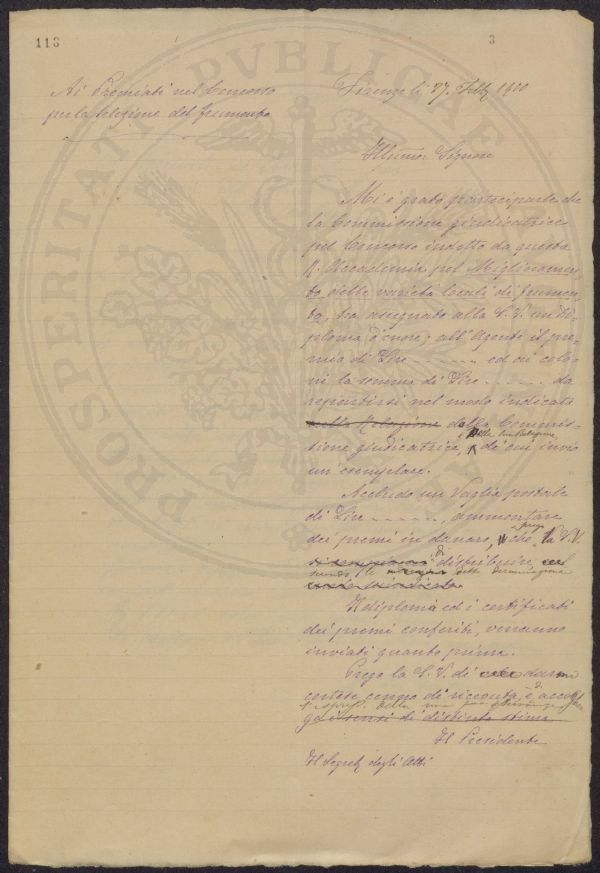 113
3
Ai Premiati nel Concorso
per la selezione del frumento
Firenze li 27. 1900
Illmo. Signore
Mi è grato parteciparle che
la Commissione giudicatrice
pel Concorso indetto da questa
R. Accademia pel Miglioramen-
to delle varietà locali di frumen-
to, ha assegnato alla S. V. un Di-
ploma d'onore; all'Agente il pre-
mio di Lire - - - - - ed ai colo-
ni la somma di Lire - - - - - da
repartirsi nel modo indicato
nella Relazione dalla Commis-
sione giudicatrice, nella Relazione, di cui invio
un esemplare.
Accludo un Vaglia postale
di Lire - - - - -, ammontare
dei premi in danaro, che prego la S. V.
di distribuire
secondo le dette
Il diploma ed i certificati
dei premi conferiti, verranno
inviati quanto prima.
Prego la S. V. di darmi
cortese cenno di ricevuta, e di
della mia
i sensi di distinta stima
Il Presidente
Il Segret. degli Atti
PROSPERITATI PVBLICAE